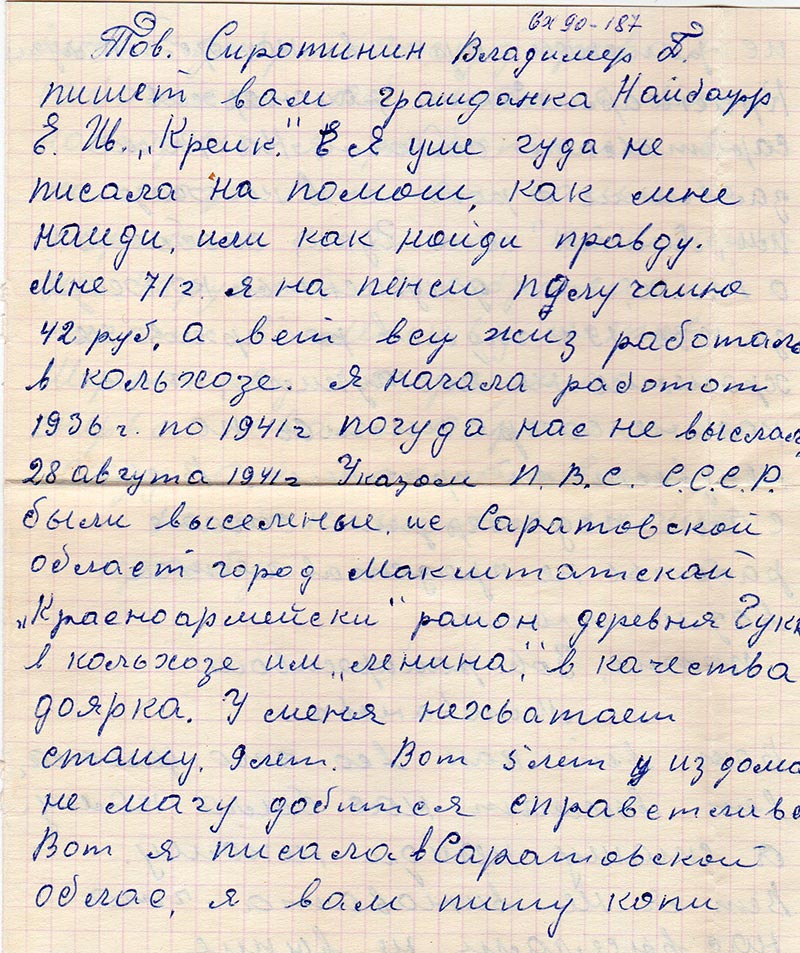 вх 90-187
Тов. Сиротинин Владимир Г.
пишет вам гражданка Найбауэр
Е. Ив. „Креик." Я уше гуда не
писала на помош, как мне
наиди, или как нойди правду.
Мне 71 г. я на пенси получаине
42 руб, а вет всу жиз работала
в кольхозе. я начала работот
1936 г. по 1941 г погуда нас не выслал
28 августа 1941 г Указом П. В. С. С.С.С.Р.
были выселеные. ис Саратовской
област город Макштатскай
„Красноармейски" район деревня Гукк
в кольхозе им „Ленина", в качества
доярка. У меня нехватает
сташу. 9 лет. Вот 5 лет у из дома
не магу добится справетливо
Вот я писала в Саратовской
облас, я вам пишу копи